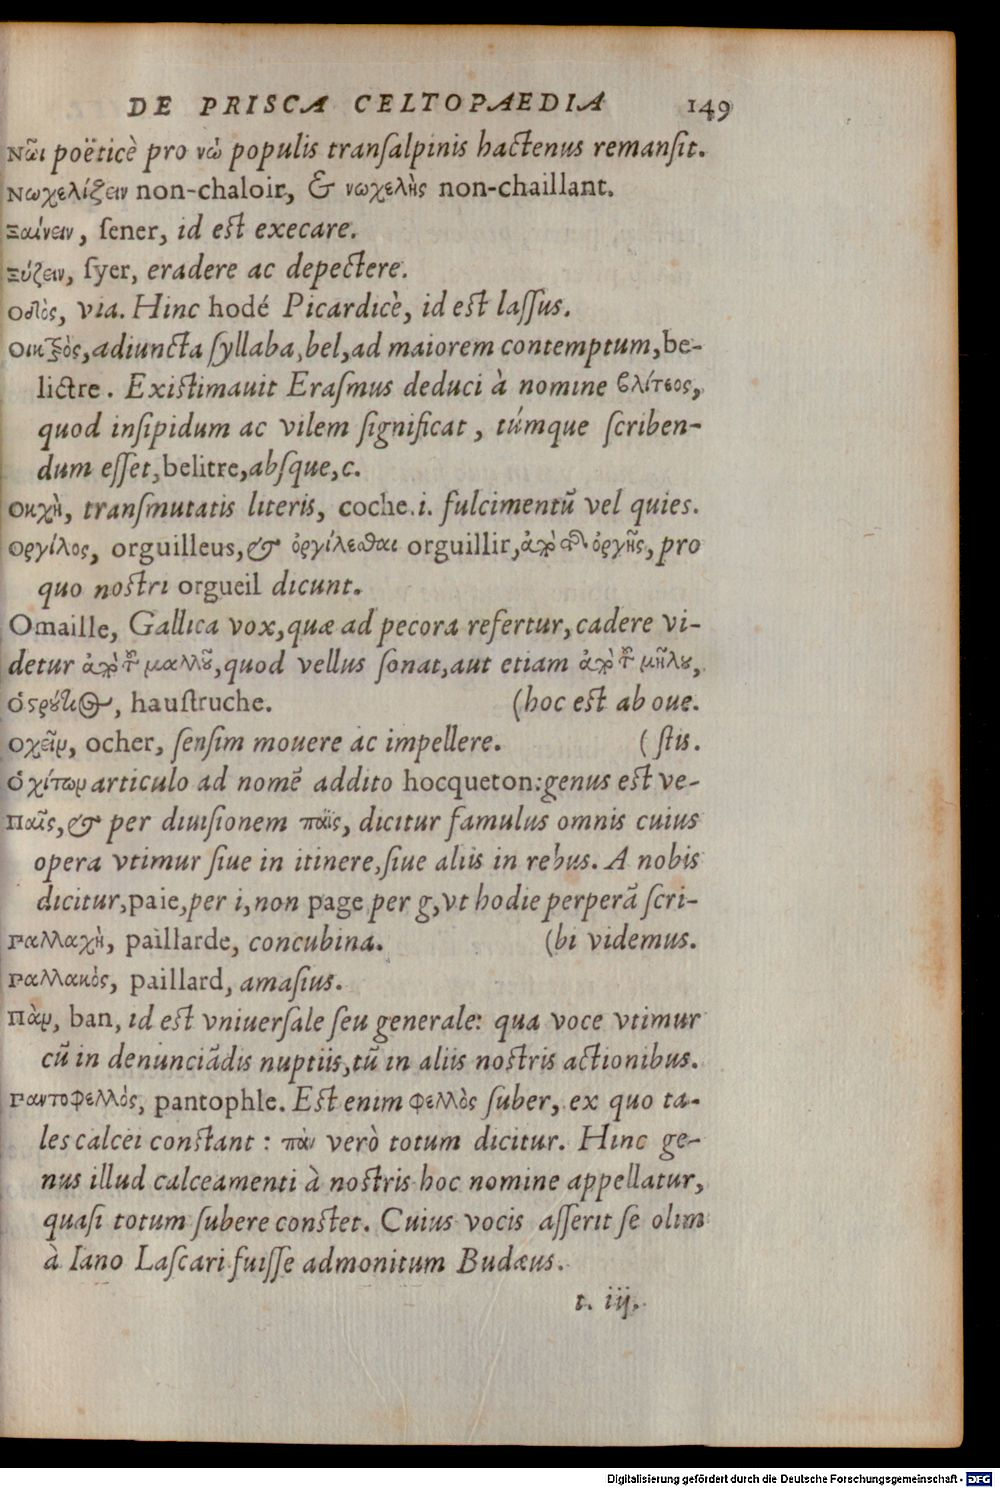 DE PRISCA CELTOPAEDIA 149
Νῶι poëticè pro νὼ populis tranſalpinis hactenus remanſit.
Νωχελίζειν non-chaloir, & νωχελὴς non-chaillant.
Ξαίνειν, ſener, id eſt execare.
Ξύζειν, ſyer, eradere ac depectere.
Οδὸς, via. Hinc hodé Picardicè, id eſt laſſus.
adiuncta ſyllaba, bel, ad maiorem contemptum, be-
lictre. Exiſtimauit Eraſmus deduci à nomine βλίτεος,
quod inſipidum ac vilem ſignificat, túmque ſcriben-
dum eſſet, belitre, abſque, c.
Οκχὴ, tranſmutatis literis, coche.i. fulcimentū vel quies.
Οργίλος, orguilleus, & ὀργίλεσθαι orguillir, ἀπὸ τῆς ὀργῆς, pro
quo noſtri orgueil dicunt.
Omaille, Gallica vox, quæ ad pecora refertur, cadere vi-
detur ἀπὸ τοῦ μαλλοῦ, quod vellus ſonat, aut etiam ἀπὸ τοῦ μήλου,
Ὀστρούθιος, hauſtruche. (hoc eſt ab oue.
Οχεῖν, ocher, ſenſim mouere ac impellere. (ſtis.
Ὀχίτων articulo ad nomē addito hocqueton: genus eſt ve-
Παῖς, & per diuiſionem πάϊς, dicitur famulus omnis cuius
opera vtimur ſiue in itinere, ſiue aliis in rebus. A nobis
dicitur, paie, per i, non page per g, vt hodie perperā ſcri-
Παλλαχὴ, paillarde, concubina. (bi videmus.
Παλλακὸς, paillard, amaſius.
Πὰν, ban, id eſt vniuerſale ſeu generale: qua voce vtimur
cū in denunciādis nuptiis, tū in aliis noſtris actionibus.
Παντοφελλὸς, pantophle. Eſt enim φελλὸς ſuber, ex quo ta-
les calcei conſtant: πὰν verò totum dicitur. Hinc ge-
nus illud calceamenti à noſtris hoc nomine appellatur,
quaſi totum ſubere conſtet. Cuius vocis aſſerit ſe olim
à Iano Laſcari fuiſſe admonitum Budæus.
t. iij.
Digitalisierung gefördert durch die Deutsche Forschungsgemeinschaft - DFG